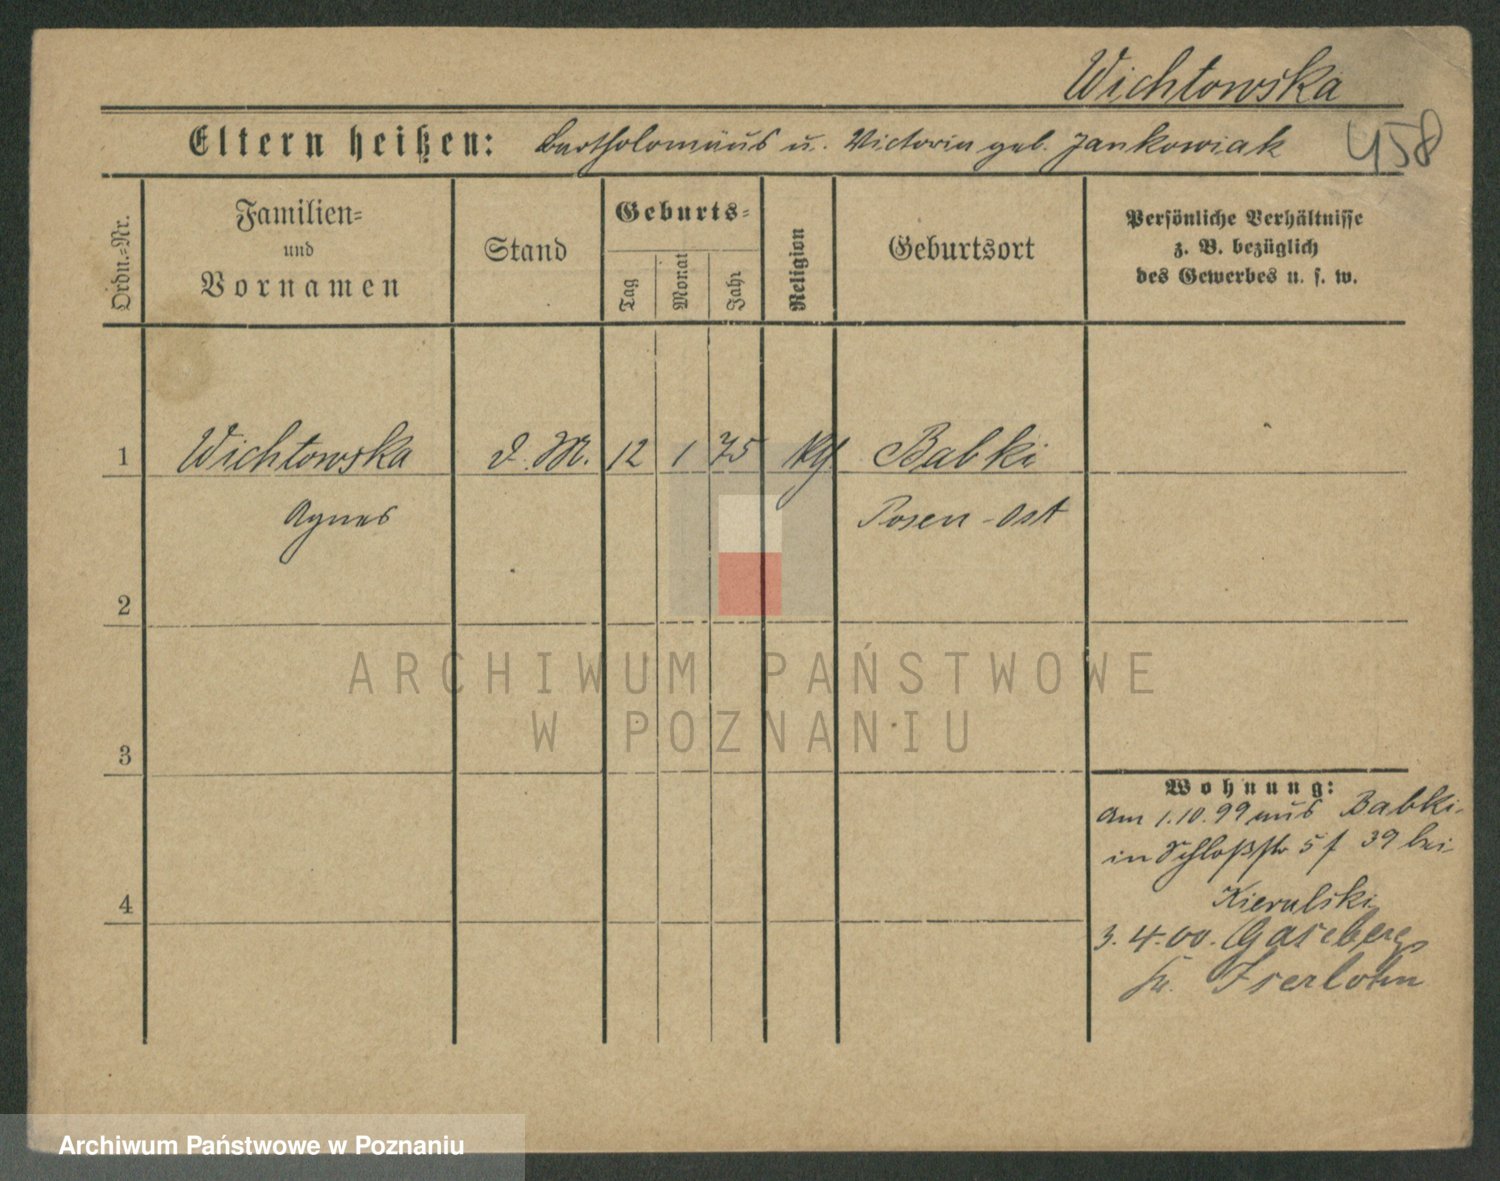 Wichtowska
Eltern heißen: Bartholomäus u. Victoria geb. Jankowiak
458
Ordn.-Nr.
Familien-
und
Vornamen
Stand
Geburts-
Tag
Monat
Jahr
Religion
Geburtsort
Persönliche Verhältnisse
z. B. bezüglich
des Gewerbes u. s. w.
1 Wichtowska d. M. 12 1 75 Babki
Agnes Posen-Ost
2
3
4
ARCHIWUM PAŃSTWOWE
W POZNANIU
Wohnung:
Am 1.10.99 aus Babki
in Schloßstr 5 f 39 bei
Kieralski
3.4.00.
Kr. Iserlohn
Archiwum Państwowe w Poznaniu